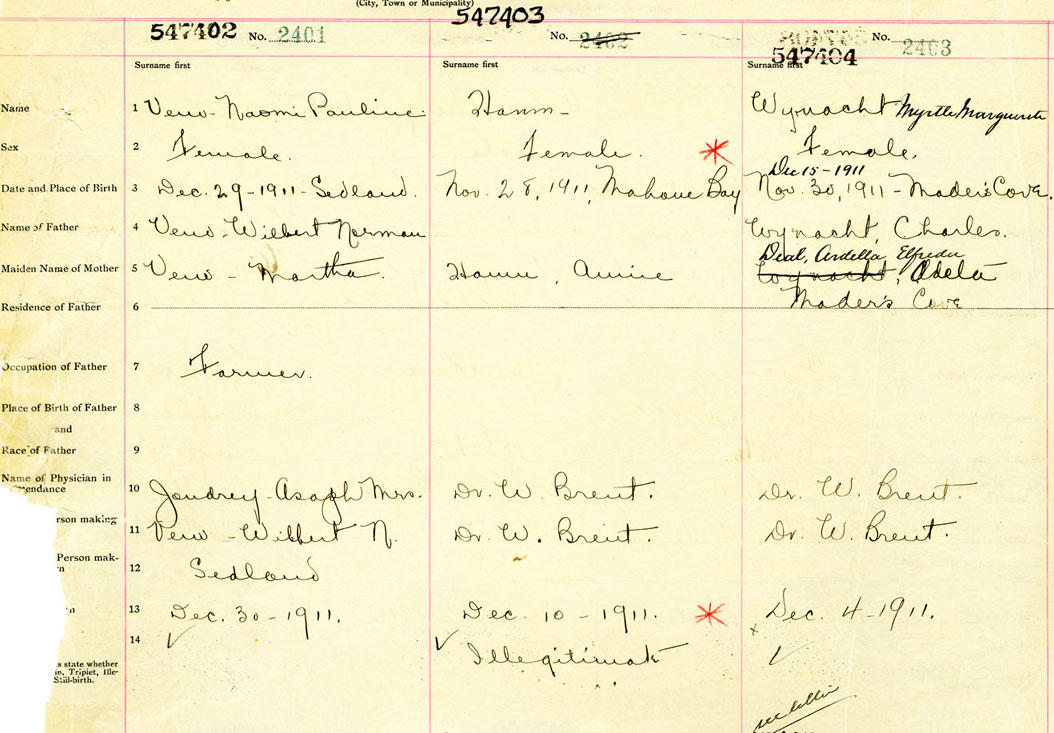 (City, Town or Municipality)
547402 No. 2401
547403
No. 2402
No. 2403
547404
Surname first
Surname first
Surname first
Name 1 Veno- Naomi Pauline Hamm- Wynacht Myrtle Marguerite
Sex 2 Female. Female. Female.
Dec 15-1911
Date and Place of Birth 3 Dec. 29-1911-Sedland. Nov. 28, 1911, Mahone Bay Nov. 30, 1911-Mader's Cove.
Name of Father 4 Veno-Wilbert Norman Wynacht, Charles.
Deal, Ardella Elfreda
Maiden Name of Mother 5 Veno- Martha. Hamm, Annie Wynacht, Adela
Residence of Father 6 Mader's Cove
Occupation of Father 7 Farmer.
Place of Birth of Father 8
and
Race of Father 9
Name of Physician in
endance 10 Joudrey-Asaph Mrs. Dr. W. Brent. Dr. W. Brent.
erson making 11 Veno-Wilbert N. Dr. W. Brent. Dr. W. Brent.
Person mak-
n 12 Sedland
n 13 Dec. 30-1911. Dec. 10-1911. Dec. 4-1911.
14 Illegitimate
s state whether
in, Triplet, Ille-
Still-birth.
see letter